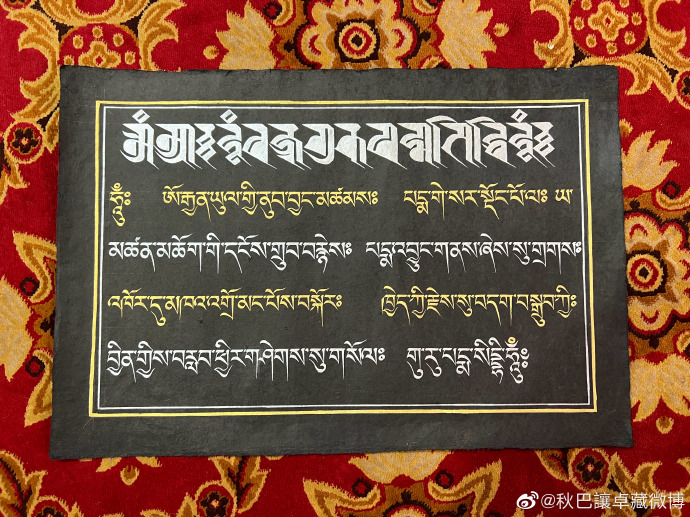 ཧཱུྃ༔ ཨོ་རྒྱན་ཡུལ་གྱི་ནུབ་བྱང་མཚམས༔ པདྨ་གེ་སར་སྡོང་པོ་ལ༔ ཡ
མཚན་མཆོག་གི་དངོས་གྲུབ་བརྙེས༔ པདྨ་འབྱུང་གནས་ཞེས་སུ་གྲགས༔
འཁོར་དུ་མཁའ་འགྲོ་མང་པོས་བསྐོར༔ ཁྱེད་ཀྱི་རྗེས་སུ་བདག་བསྒྲུབ་ཀྱི༔
བྱིན་གྱིས་བརླབ་ཕྱིར་གཤེགས་སུ་གསོལ༔ གུ་རུ་པདྨ་སིདྡྷི་ཧཱུྃ༔
@秋巴讓卓藏微博